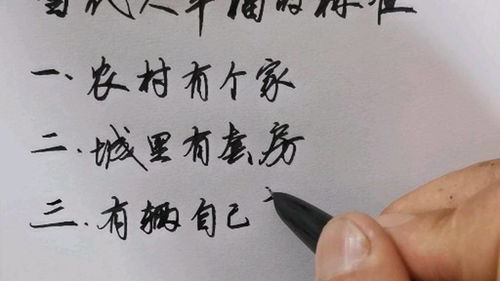 当代人幸福的标准
一、农村有个家
二、城里有套房
三、有辆自己